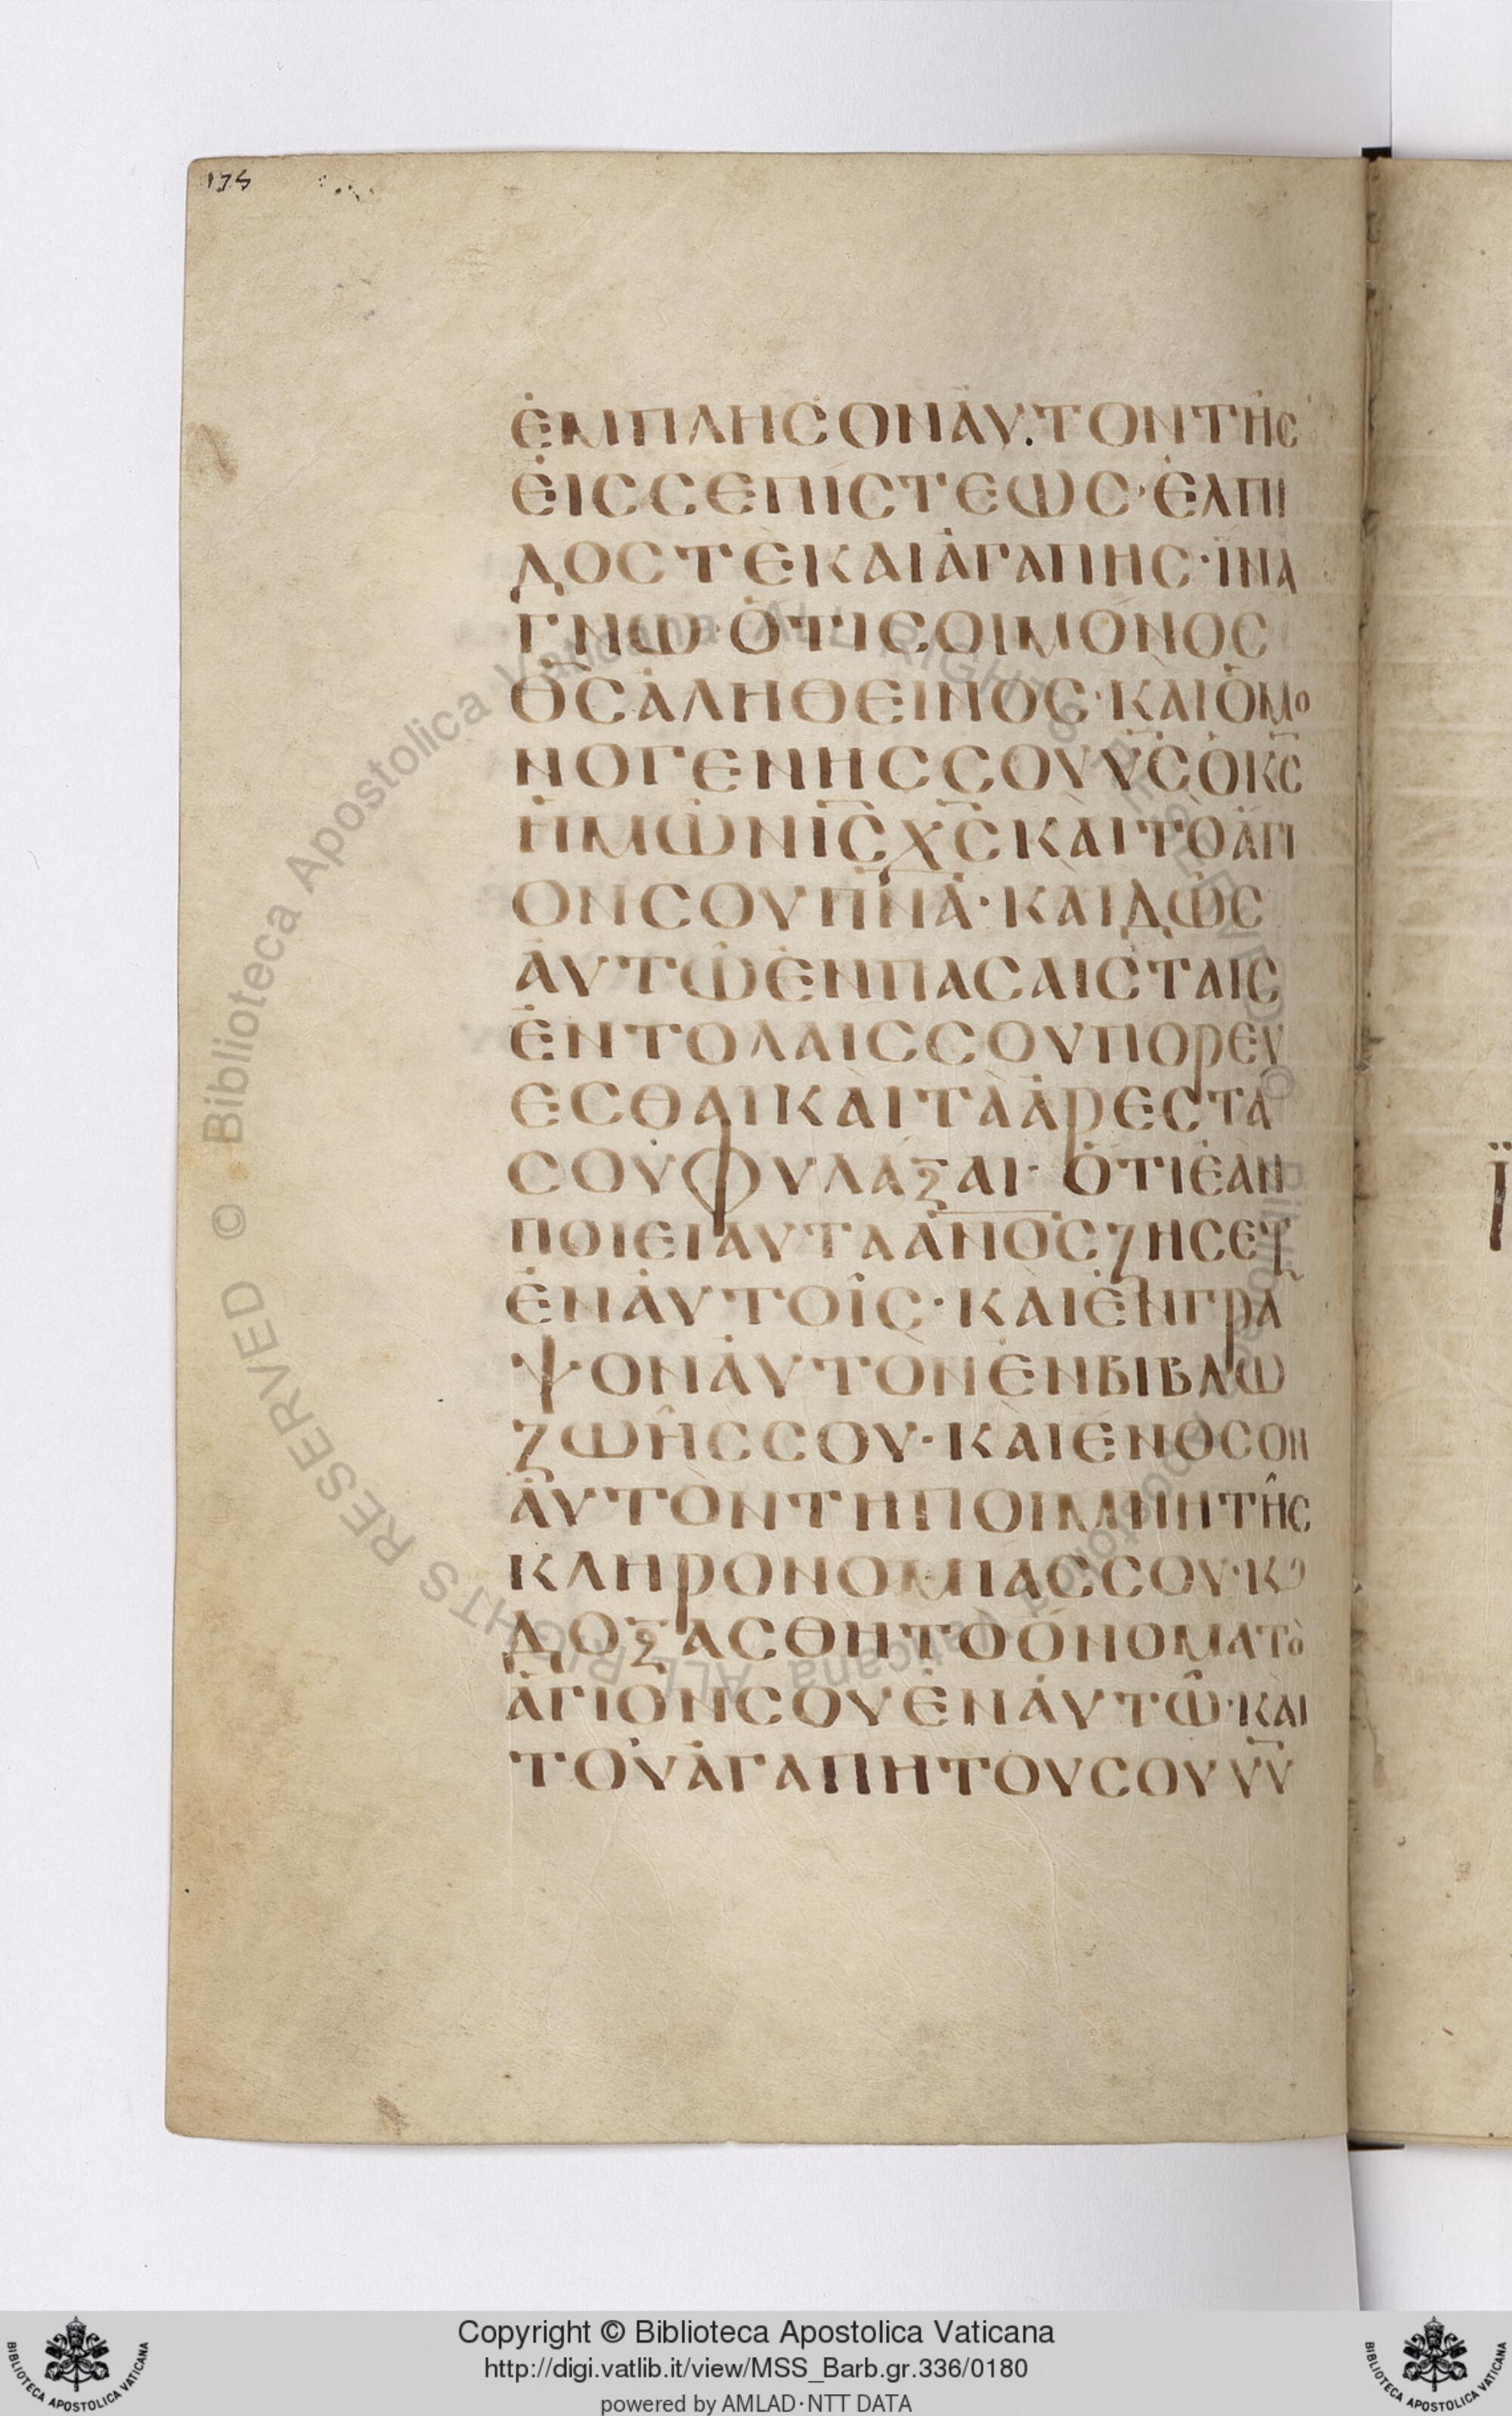 175
ἘΜΠΛΗϹΟΝἈΥ.ΤΟΝΤΗ͂Ϲ
ἘΙϹϹΕΠΙϹΤΕΩϹ·ἘΛΠΙ
ΔΟϹΤΕΚΑΙἈΓΑΠΗϹ·ΪΝΑ
ΓΝΩ·ὍΤΙϹΟΙΜΟΝΟϹ
Θ̅Ϲ̅ἈΛΗΘΕΙΝΟϹ·ΚΑΙὉΜΟ
ΝΟΓΕΝΗϹϹΟΥΥ̅Ϲ̅ὉΚ̅Ϲ̅
ἩΜΩ͂ΝΙ̅Ϲ̅Χ̅Ϲ̅ΚΑΙΤΟἉΓΙ
ΟΝϹΟΥΠ̅Ν̅Α̅·ΚΑΙΔΩϹ
ἈΥΤΩ͂ἘΝΠΑϹΑΙϹΤΑΙϹ
ἘΝΤΟΛΑΙϹϹΟΥΠΟΡΕΥ
ΕϹΘΑΙΚΑΙΤΑἈΡΕϹΤΑ
ϹΟΥΦΥΛΑΞΑΙ·ὍΤΙἘΑΝ
ΠΟΙΕΙΑΥΤΑΑ̅Ν̅Ο̅Ϲ̅ΖΗϹΕΤ
ἘΝἈΥΤΟΙ͂Ϲ·ΚΑΙἘΝΓΡΑ
ΨΟΝἈΥΤΟΝἘΝΒΙΒΛΩ
ΖΩΗ͂ϹϹΟΥ·ΚΑΙΕΝΘϹΟΝ
ἈΥΤΟΝΤΗΠΟΙΜΝΗΤΗ͂Ϲ
ΚΛΗΡΟΝΟΜΙΑϹϹΟΥ·Κ
ΔΟΞΑϹΘΗΤΟὌΝΟΜΑΤΟ
ἉΓΙΟΝϹΟΥἘΝἈΥΤΩ͂·ΚΑΙ
ΤΟΥἈΓΑΠΗΤΟΥϹΟΥΥ̅Υ̅
Ϊ
© Biblioteca Apostolica Vaticana ALL RIGHTS RESERVED
Copyright © Biblioteca Apostolica Vaticana
http://digi.vatlib.it/view/MSS_Barb.gr.336/0180
powered by AMLAD·NTT DATA
BIBLIOTECA APOSTOLICA VATICANA
BIBLIOTECA APOSTOLICA VATICANA